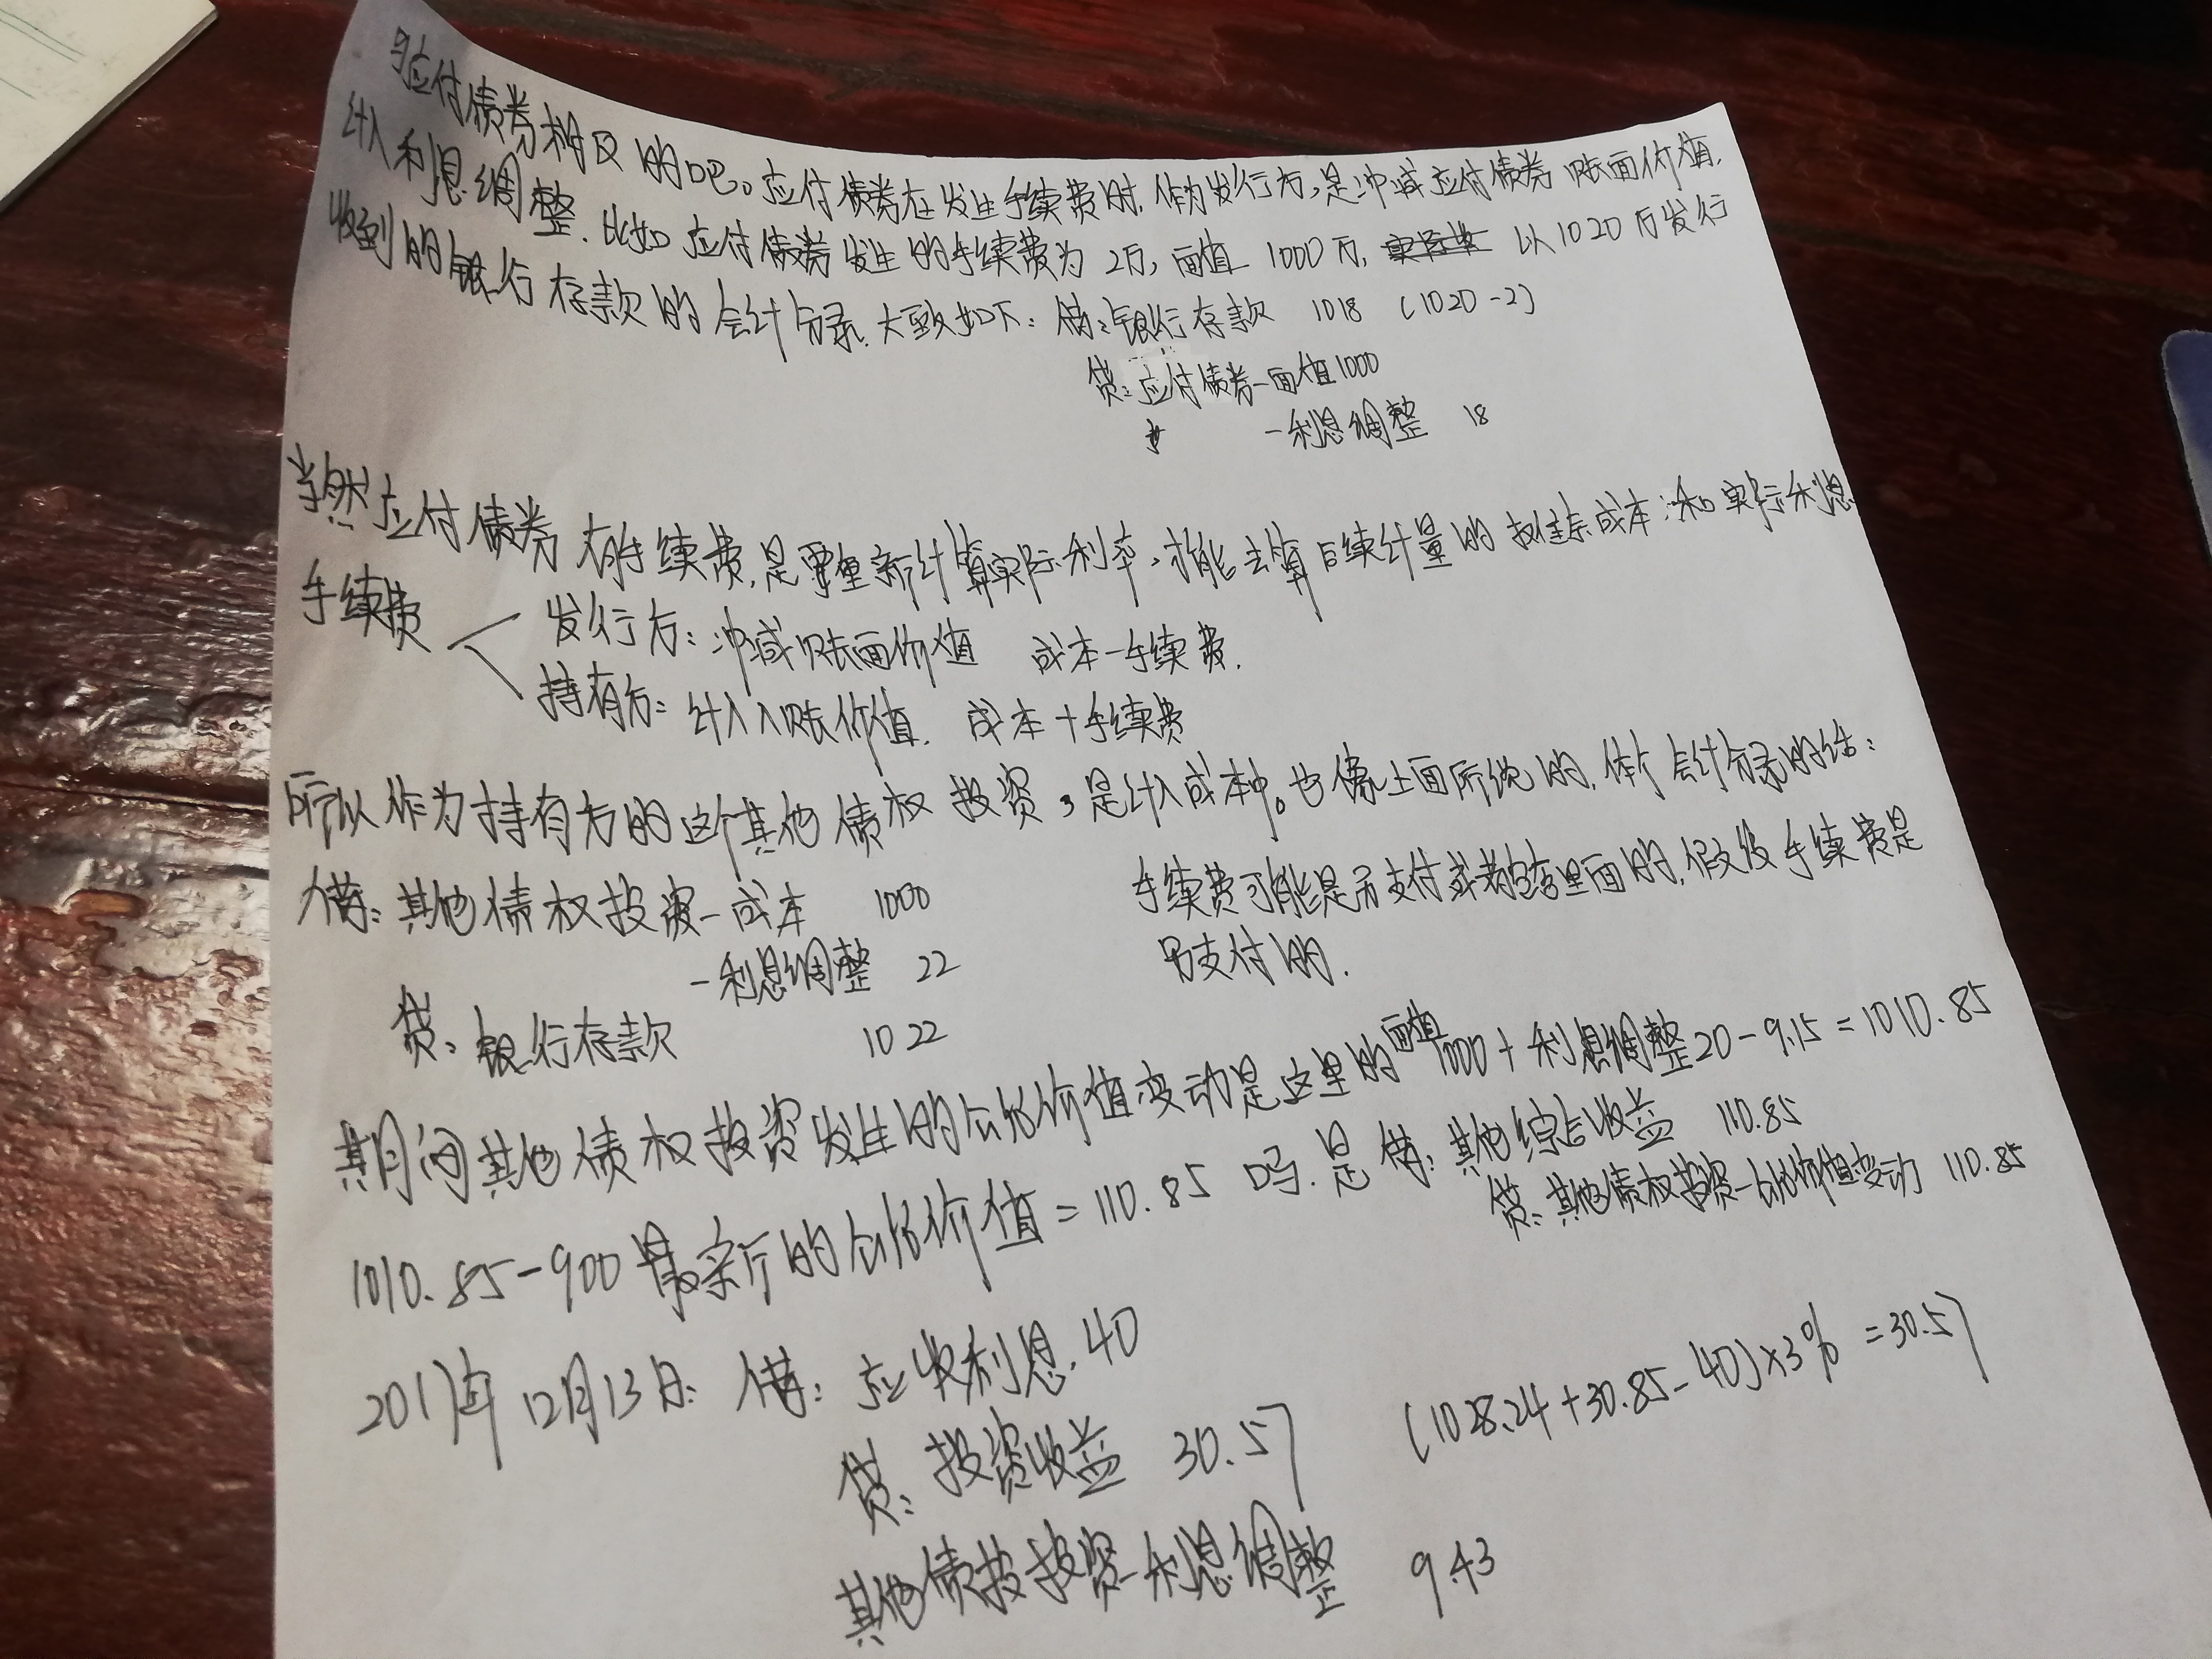 与应付债券相反的吧。应付债券在发生手续费时,作为发行方,是冲减应付债券账面价值,
计入利息调整.比如应付债券发生的手续费为2万,面值1000万,以1020万发行
收到的银行存款的会计分录.大致如下:借:银行存款 1018 (1020-2)
贷:应付债券-面值1000
-利息调整 18
当然应付债券有手续费,是要重新计算实际利率,才能去算后续计量的摊余成本和实际利息
手续费
发行方:冲减账面价值 成本-手续费.
持有方:计入入账价值. 成本+手续费
所以作为持有方的这个其他债权投资,是计入成本中。也像上面所说的,体个会计分录的话:
借:其他债权投资-成本 1000
手续费可能是另支付或者包含里面的,假设手续费是
-利息调整 22
另支付的.
贷:银行存款 1022
期间其他债权投资发生的公允价值变动是这里的面值1000+利息调整20-9.15=1010.85
1010.85-900最新的公允价值=110.85吗.是借:其他综合收益 110.85
贷:其他债权投资-公允价值变动 110.85
2017年12月13日:借:应收利息.40
贷:投资收益 30.57 (1028.24+30.85-40)×3%=30.57
其他债投投资-利息调整 9.43